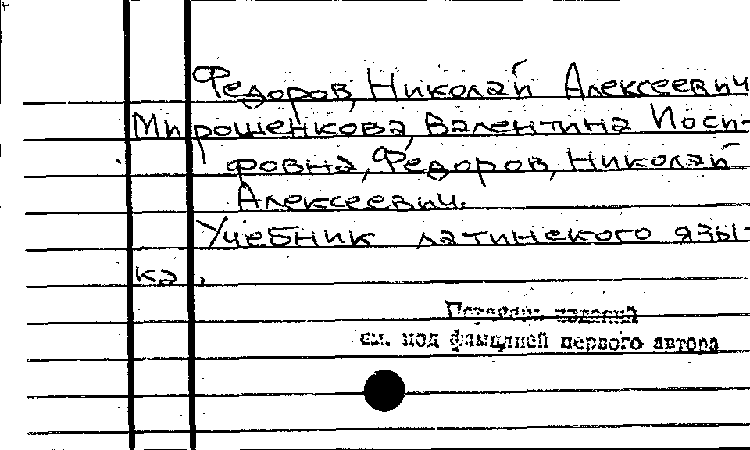 Федоров, Николай Алексеевич
Мирошенкова, Валентина Иоси-
фовна, Федоров, Николай
Алексеевич.
Учебник латинского язы-
ка.
Перечень изданий
см. под фамилией первого автора